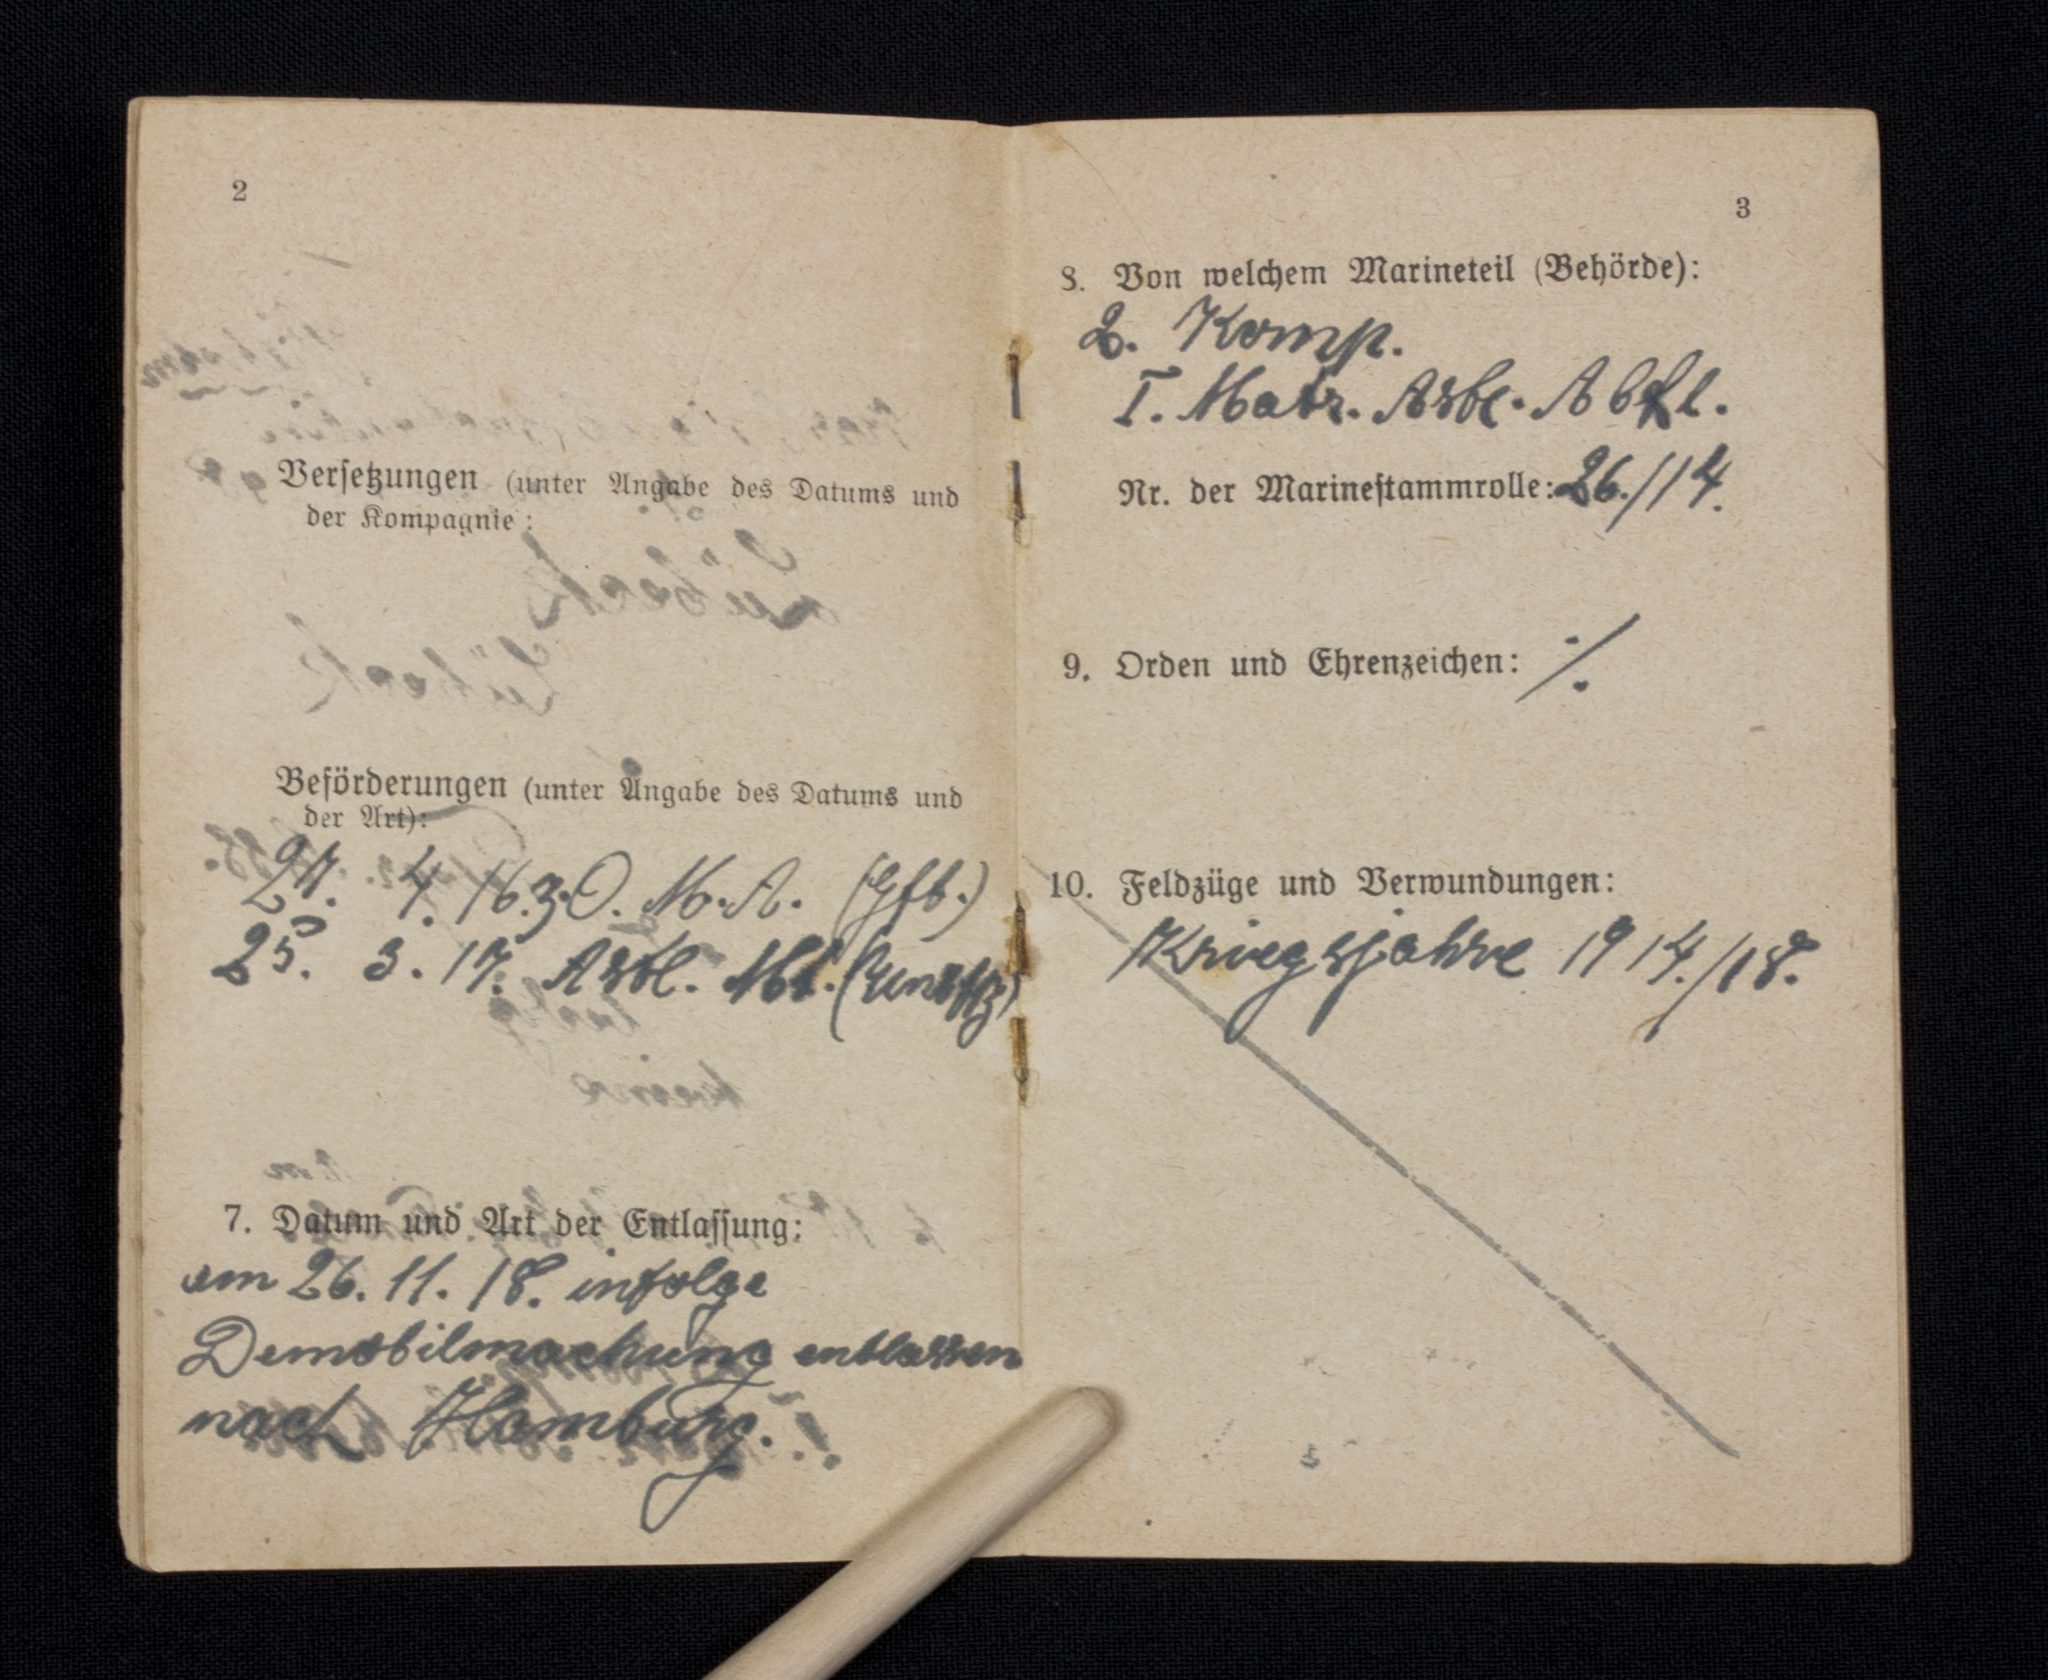 2
Versetzungen (unter Angabe des Datums und
der Kompagnie:
Beförderungen (unter Angabe des Datums und
der Art):
27. 4. 16. z. O. M. A. (Gfb.)
25. 3. 17. Artl. Mt.
7. Datum und Art der Entlassung:
am 26. 11. 18. infolge
Demobilmachung entlassen
nach Hamburg.
3
8. Von welchem Marineteil (Behörde):
2. Komp.
I. Matr. Artl. Abtl.
Nr. der Marinestammrolle: 26./14.
9. Orden und Ehrenzeichen: ./.
10. Feldzüge und Verwundungen:
Kriegsjahre 1914./18.